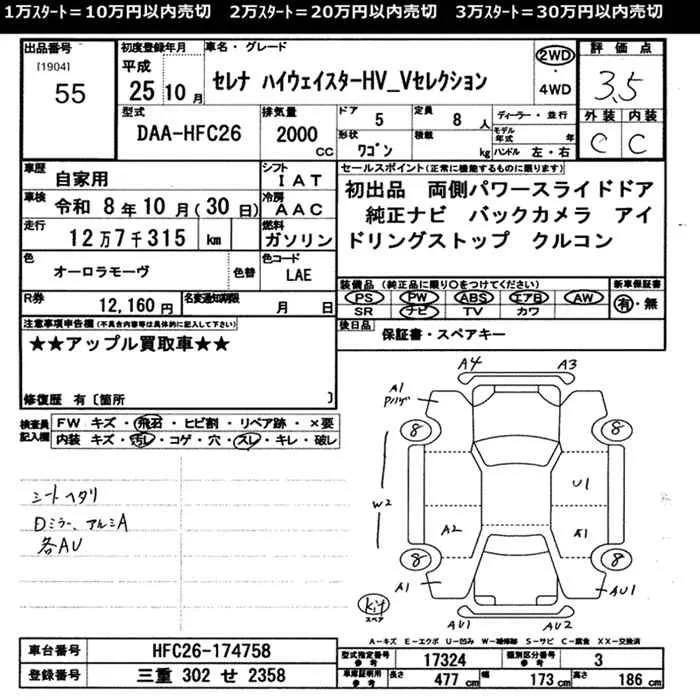 1万ｽﾀｰﾄ＝10万円以内売切　2万ｽﾀｰﾄ＝20万円以内売切　3万ｽﾀｰﾄ＝30万円以内売切
出品番号
[1904]
55
初度登録年月
平成
25 10 月
車名・グレード
セレナ ハイウェイスターHV_Vセレクション
2WD
・
4WD
評価点
3.5
外装 内装
C C
型式
DAA-HFC26
排気量
2000
CC
ドア 5
定員 8 人
形状 ﾜｺﾞﾝ
積載 kg
ディーラー・並行
モデル年式 年
ハンドル 左・右
車歴 自家用
シフト IAT
車検 令和 8年10月(30日)
冷房 AAC
走行 12万7千315 km
燃料 ガソリン
色 オーロラモーヴ
色替
色コード LAE
R券 12,160円
名変通知期限 月 日
セールスポイント(正常に機能するものに限ります)
初出品 両側パワースライドドア
純正ナビ バックカメラ アイ
ドリングストップ クルコン
装備品 (純正品に限り○をつけてください)
PS PW ABS エアB AW
SR ナビ TV カワ
新車保証書
有・無
後日品 保証書・スペアキー
注意事項申告欄(不具合内容等は具体的に記入して下さい)
★★アップル買取車★★
修復歴 有〔箇所 〕
検査員記入欄
FW キズ・飛石・ヒビ割・リペア跡・×要
内装 キズ・汚レ・コゲ・穴・スレ・キレ・破レ
シートヘタリ
Dミラー、アルミA
各AU
A4 A3
A1
8 8
W2
U1
A2 A1
8 8
A1 AU1
AU1 AU2
kit
スペア
A-キズ E-エクボ U-凹み W-補修跡 S-サビ C-腐食 XX-交換済
車台番号 HFC26-174758
登録番号 三重 302 せ 2358
型式指定番号 参考 17324
類別区分番号 参考 3
車庫証明用 参考 長さ 477 cm 幅 173 cm 高さ 186 cm